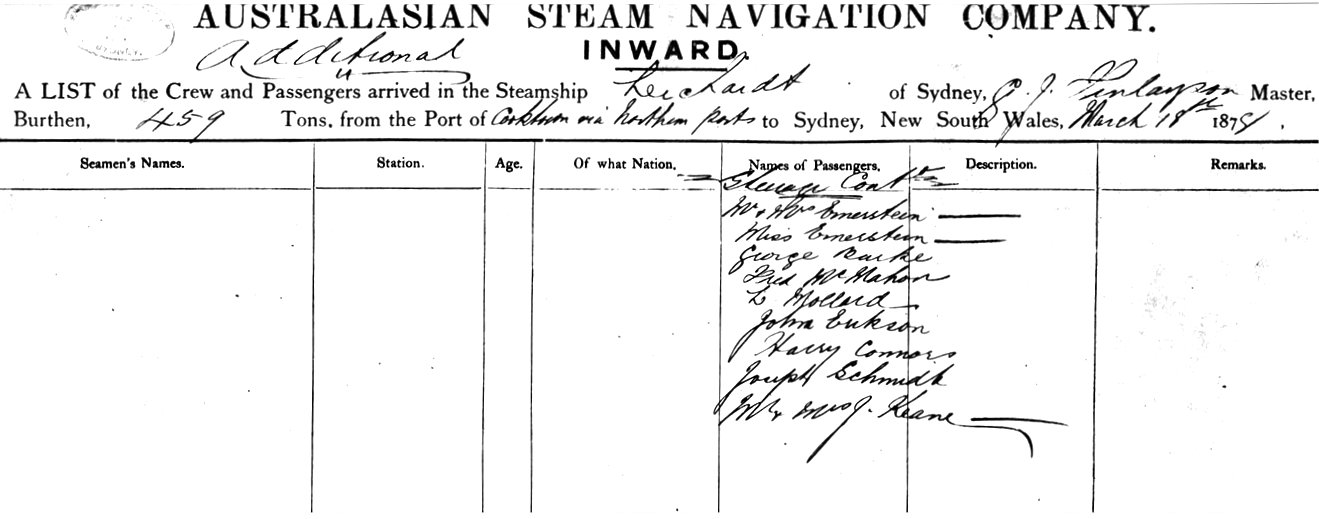 AUSTRALASIAN STEAM NAVIGATION COMPANY.
Additional
INWARD.
A LIST of the Crew and Passengers arrived in the Steamship Leichardt of Sydney, J. Finlayson Master,
Burthen, 459 Tons, from the Port of Cooktown via Northern Ports to Sydney, New South Wales, March 18th 187
Seamen's Names. Station. Age. Of what Nation. Names of Passengers. Description. Remarks.
Steerage Contd
Mr & Mrs Emerstein
Miss Emerstein
George Burke
Fred McMahon
L Mollard
John Erikson
Harry Connors
Joseph Schmidt
Mr & Mrs J. Keane